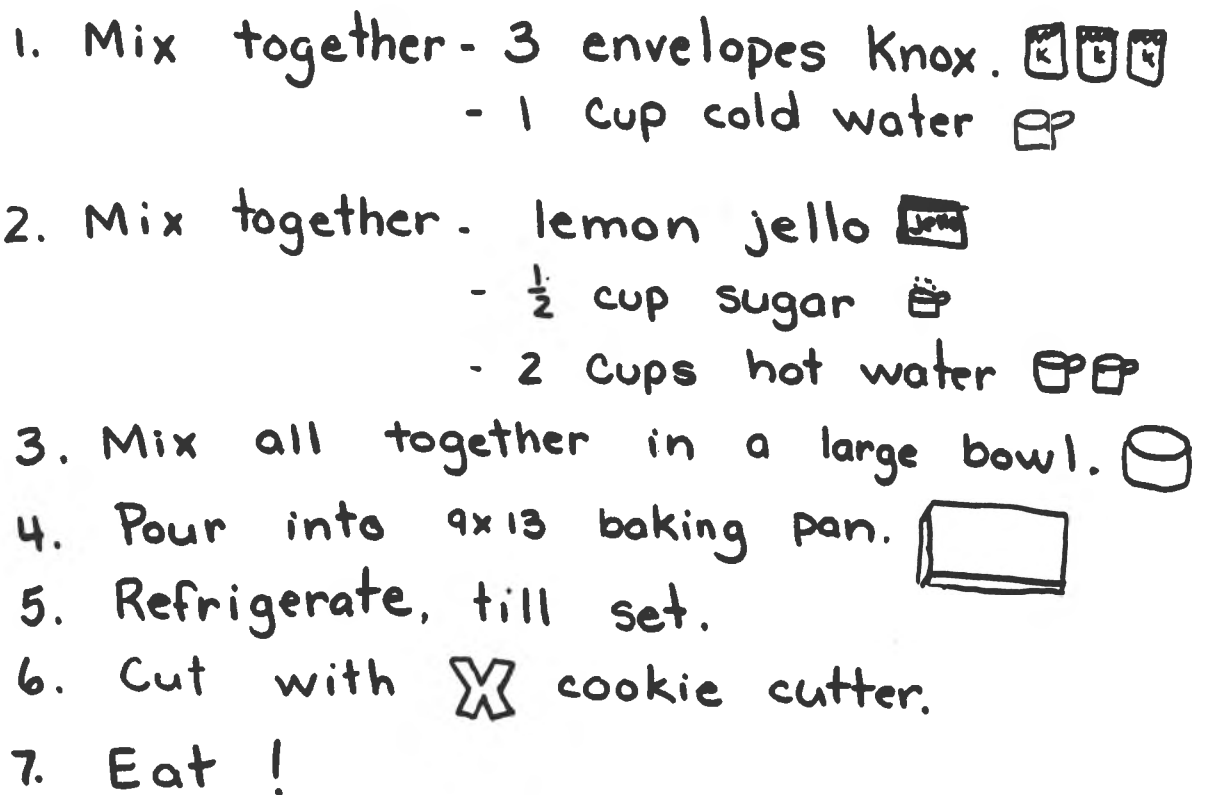 1. Mix together - 3 envelopes Knox. K K K
- 1 cup cold water
2. Mix together - lemon jello Jello
- 1/2 cup sugar
- 2 cups hot water
3. Mix all together in a large bowl.
4. Pour into 9x13 baking pan.
5. Refrigerate, till set.
6. Cut with X cookie cutter.
7. Eat !